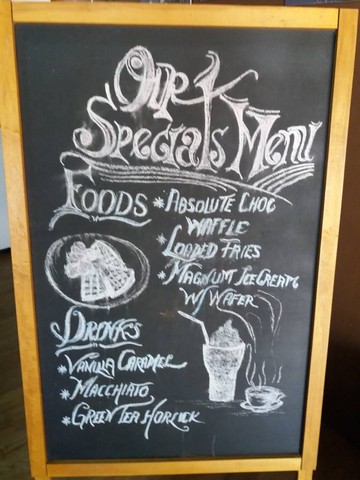 Our
Specials Menu
Foods
* Absolute Choc
Waffle
* Loaded Fries
* Magnum Ice Cream
W/ Wafer
Drinks
* Vanilla Caramel
* Macchiato
* Green Tea Horlick